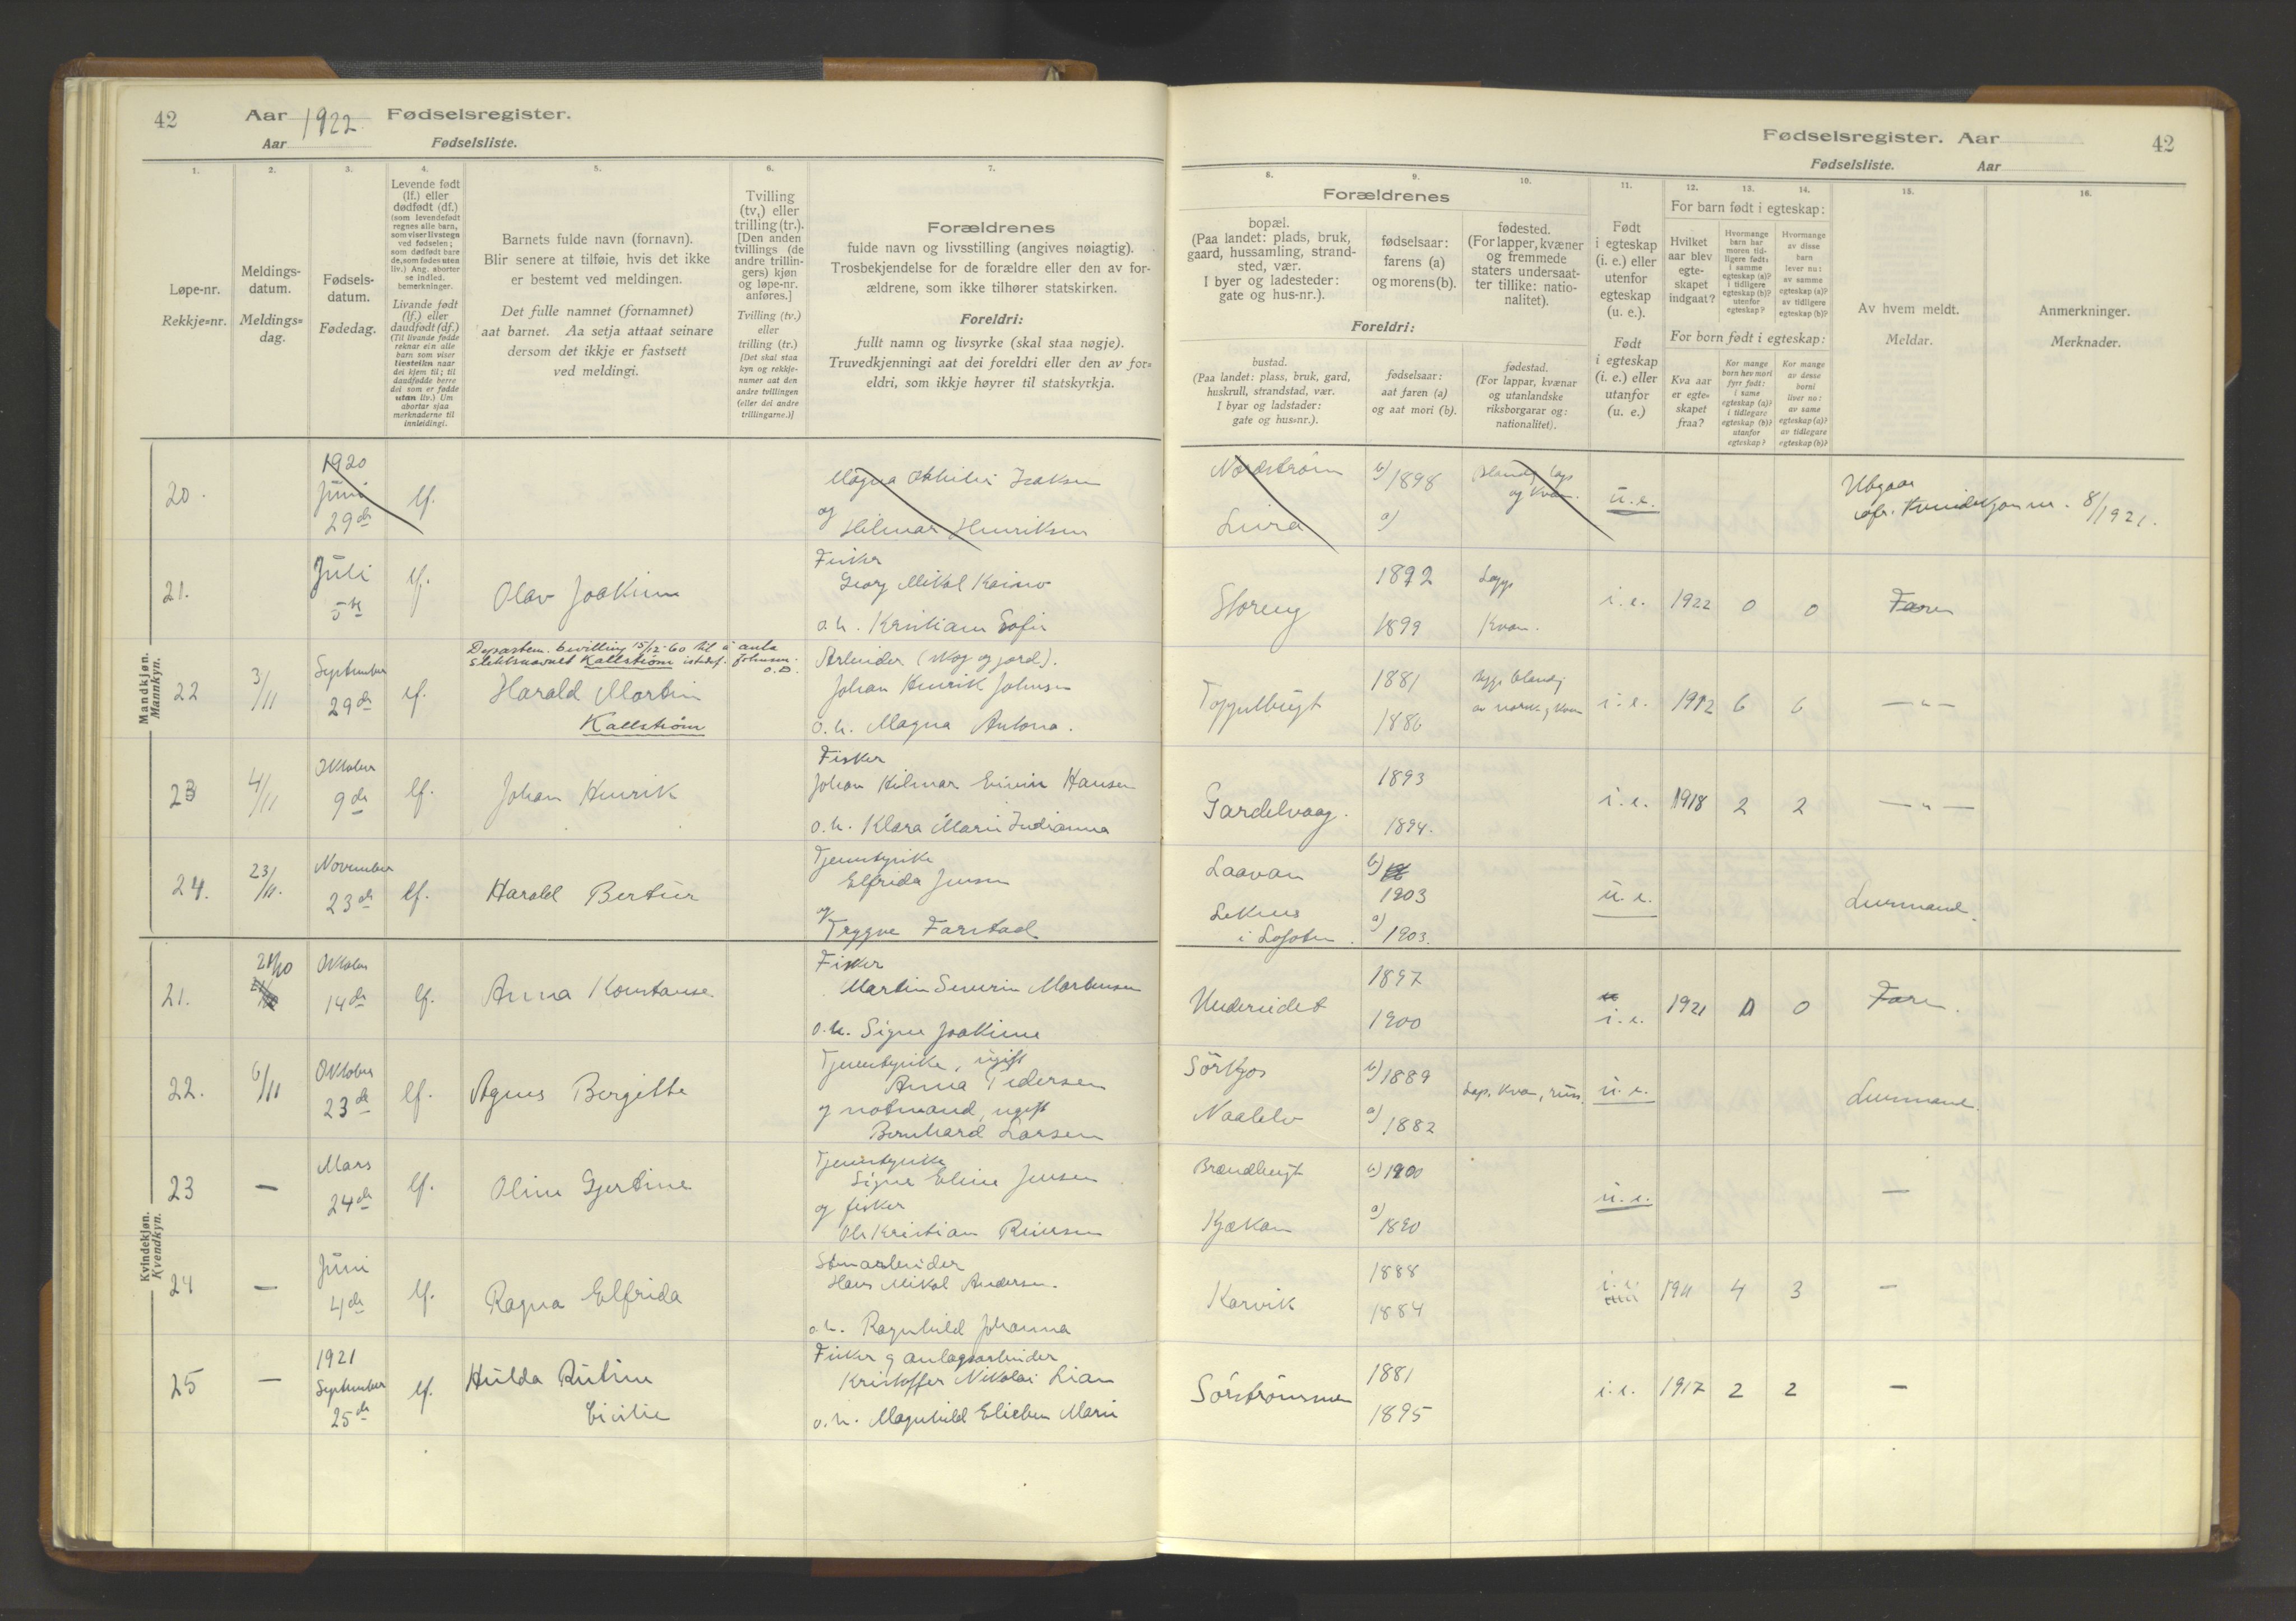 42
Aar 1922. Fødselsregister.
Aar Fødselsliste.
1. 2. 3. 4. 5. 6. 7.
Løpe-nr.
Rekkje=nr.
Meldings-
datum.
Meldings=
dag.
Fødsels-
datum.
Fødedag.
Levende født
(lf.) eller
dødfødt (df.)
(som levendefødt
regnes alle barn,
som viser livstegn
ved fødselen;
som dødfødt bare
de, som fødes uten
liv.) Ang. aborter
se indled.
bemerkninger.
Livande født
(lf.) eller
daudfødt (df.)
(Til livande fødde
reknar ein alle
barn som viser
livsteikn naar
dei kjem til; til
daudfødde berre
dei som er fødde
utan liv.) Um
abortar sjaa
merknaderne til
innleidingi.
Barnets fulde navn (fornavn).
Blir senere at tilføie, hvis det ikke
er bestemt ved meldingen.
Det fulle namnet (fornamnet)
aat barnet. Aa setja attaat seinare
dersom det ikkje er fastsett
ved meldingi.
Tvilling
(tv.) eller
trilling (tr.).
[Den anden
tvillings (de
andre trillin-
gers) kjøn
og løpe-nr.
anføres.]
Tvilling (tv.)
eller
trilling (tr.)
[Det skal staa
kyn og rekkje-
numer aat den
andre tvillingen
(eller dei andre
trillingarne.)]
Forældrenes
fulde navn og livsstilling (angives nøiagtig).
Trosbekjendelse for de forældre eller den av for-
ældrene, som ikke tilhører statskirken.
Foreldri:
fullt namn og livsyrke (skal staa nøgje).
Truvedkjenningi aat dei foreldri eller den av for=
eldri, som ikkje høyrer til statskyrkja.
Fødselsregister. Aar
42
Fødselsliste. Aar
8. 9. 10. 11. 12. 13. 14. 15. 16.
Forældrenes
bopæl.
(Paa landet: plads, bruk,
gaard, hussamling, strand-
sted, vær.
I byer og ladesteder:
gate og hus-nr.).
fødselsaar:
farens (a)
og morens (b).
fødested.
(For lapper, kvæner
og fremmede
staters undersaat-
ter tillike: natio-
nalitet).
Foreldri:
bustad.
(Paa landet: plass, bruk, gard,
huskrull, strandstad, vær.
I byar og ladstader:
gate og hus=nr.).
fødselsaar:
aat faren (a)
og aat mori (b).
fødestad.
(For lappar, kvænar
og utanlandske
riksborgarar og:
nationalitet).
Født
i egteskap
(i. e.) eller
utenfor
egteskap
(u. e.).
Født
i egteskap
(i. e.) eller
utanfor
(u. e.)
For barn født i egteskap:
Hvilket
aar blev
egte-
skapet
indgaat?
Hvormange
barn har
moren tid-
ligere født:
i samme
egteskap (a)?
i tidligere
egteskap (b)?
utenfor
egteskap?
Hvormange
av disse
barn
lever nu:
av samme
egteskap (a)?
av tidligere
egteskap (b)?
For born født i egteskap:
Kva aar
er egte=
skapet
fraa?
Kor mange
born hev mori
fyrr født:
i same
egteskap (a)?
i tidlegare
egteskap (b)?
utanfor
egteskap?
Kor mange
av desse
borni
liver no:
av same
egteskap (a)?
av tidlegare
egteskap (b)?
Av hvem meldt.
Meldar.
Anmerkninger.
Merknader.
Mandkjøn.
Mannkyn.
20.
1920
Juni
29de
lf.
Magna Othilie Isaksen
og
Hilmar Henriksen
Nordstrøm
b) 1898
u. e.
a)
Utgaar
8/1921.
21.
Juli
5te
lf.
Olav Joakim
Fisker
Georg Mikal Kaino
o. h. Kristiane Sofie
Storeng
1892
1899
Kvæn.
i. e. 1922 0 0 Faren
Departem. bevilling 15/12-60 til å anta
slektsnavnet Kallstrøm istedf. Johnsen.
O.D.
22
3/11
September
29de
lf.
Harald Martin
Kallstrøm
Arbeider (skog og jord).
Johan Henrik Johnsen
o. h. Magna Antona.
Toppelbugt
1881
1886
i. e. 1912 6 6 —"—
23
4/11
Oktober
9de
lf.
Johan Henrik
Fisker
Johan Hilmar Eivin Hansen
o. h. Klara Marie Indianna
Gardelvaag.
1893
1894.
i. e. 1918 2 2 —"—
24.
23/11.
November
23de
lf.
Harald Bertin
Tjenestepike
Elfrida Jensen
og
Trygve Farstad
Laavan
b)
1903
u. e.
i Lofoten.
a) 1903.
Lensmand.
Kvindekjøn.
Kvendkyn.
21.
21/10
Oktober
14de
lf.
Anna Konstanse
Fisker
Martin Severin Mortensen
o. h. Signe Joakime
Undereidet
1897
1900
i. e. 1921 0 0 Faren.
22.
6/11
Oktober
23de
lf.
Agnes Bergitte
Tjenestepike, ugift
Anna Pedersen
og notmand, ugift
Bernhard Larsen
Sørkjos
Naalelv
b) 1889
a) 1882
Lap, Kvæn, russ.
u. e.
Lensmand.
23
—
Mars
24de
lf.
Oline Gjertine
Tjenestepike
Signe Eline Jensen
og fisker
Ole Kristian Reiersen
Brændbugt
Kjækan
b) 1900
a) 1890
u. e.
—
24
—
Juni
4de
lf.
Ragna Elfrida
Hans Mikal Andersen.
o. h. Ragnhild Johanna
Karvik
1888
1884
i. e. 1911 4 3 —
25
—
1921
September
25de
lf.
Hulda Rutine
Cicilie
Fisker og anlægsarbeider
Kristoffer Nikolai Lian
o. h. Magnhild Elieben Marie
Sørstrømmen
1881
1895
i. e. 1917 2 2 —